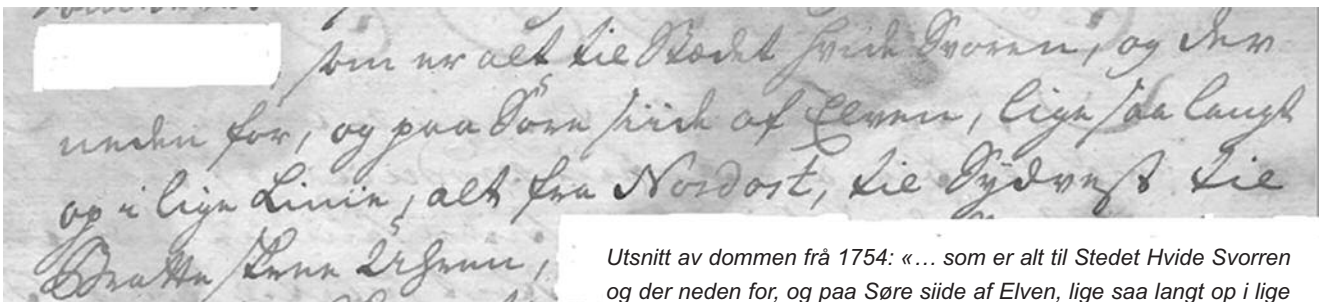 , som er alt til Stædet Hvide Svoren, og der
neden for, og paa Søre siide af Elven, lige saa langt
op i lige Linie, alt fra Nordost, til Sydvest til
Bratte
Utsnitt av dommen frå 1754: «… som er alt til Stedet Hvide Svorren
og der neden for, og paa Søre siide af Elven, lige saa langt op i lige